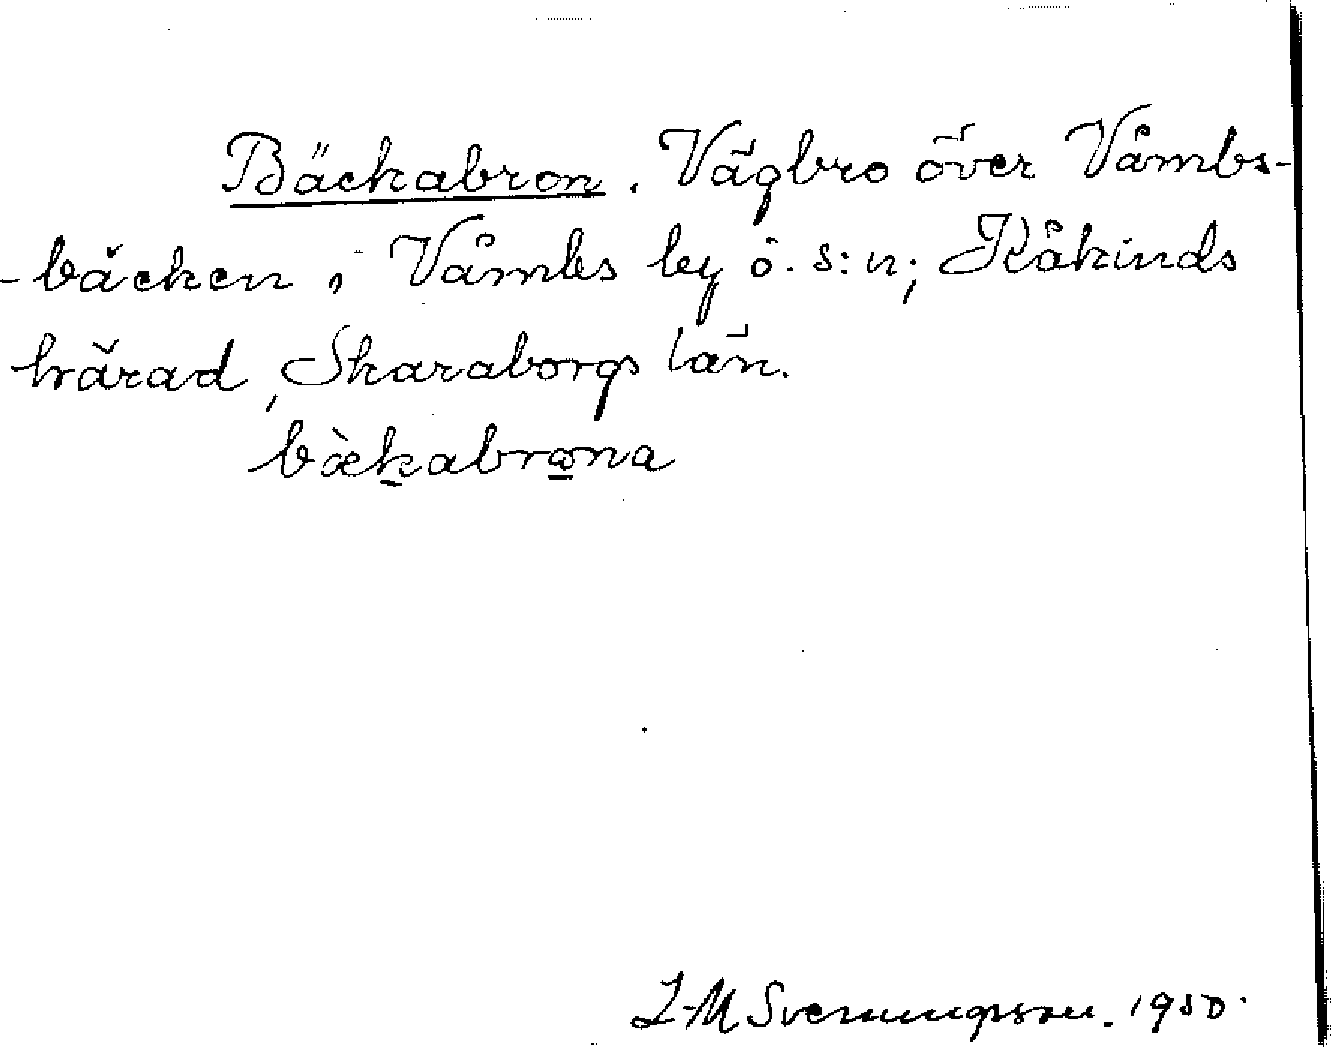 Bäckabron. Vägbro över Våmbs-
-bäcken, Våmbs by o. s:n; Kåkinds
härad, Skaraborgs län.
bækabrona
L-M Svenungsson. 1950.